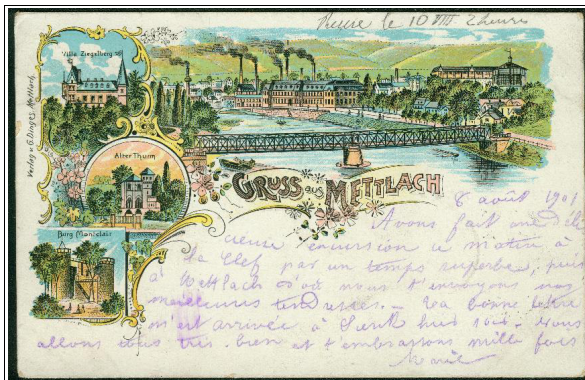 le 10 VIII 2 heures
Villa Ziegelberg
Verlag v. G. Dinges, Mettlach.
Alter Thurm
GRUSS aus METTLACH
Burg Montclair
8 août 1901
Avons fait une déli
cieuse excursion ce matin à
la Clef par un temps superbe, puis
à Mettlach d'où nous t'envoyons nos
meilleures tendresses. - Ta bonne lettre
m'est arrivée à Sierk hier soir. Nous
allons tous très bien et t'embrassons mille fois